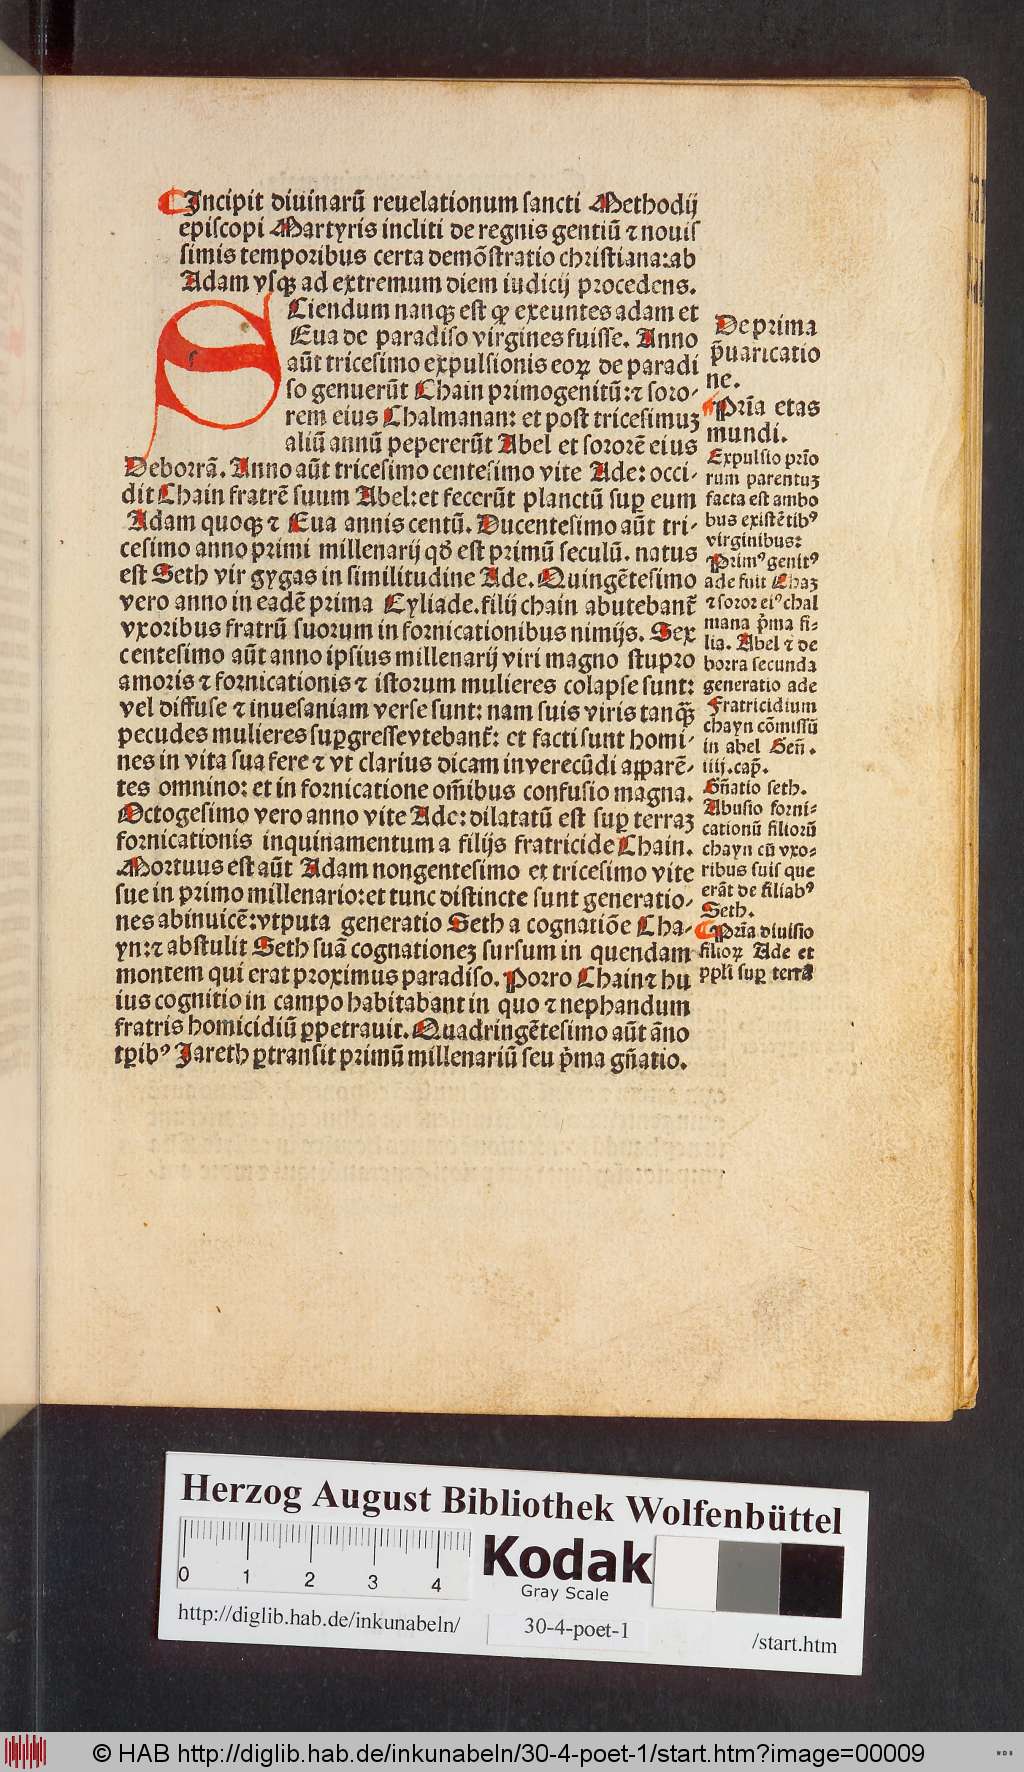 Incipit diuinarũ reuelationum sancti Methodij
episcopi Martyris incliti de regnis gentiũ ⁊ nouis
simis temporibus certa demõstratio christiana: ab
Adam vsqꝫ ad extremum diem iudicij procedens.
Sciendum nanqꝫ est ꝙ exeuntes adam et
Eua de paradiso virgines fuisse. Anno
aũt tricesimo expulsionis eoꝝ de paradi
so genuerũt Chain primogenitũ: ⁊ soro-
rem eius Chalmanan: et post tricesimuꝫ
aliũ annũ pepererũt Abel et sororẽ eius
Deborrã. Anno aũt tricesimo centesimo vite Ade: occi-
dit Chain fratrẽ suum Abel: et fecerũt planctũ suꝑ eum
Adam quoqꝫ ⁊ Eua annis centũ. Ducentesimo aũt tri-
cesimo anno primi millenarij qđ est primũ seculũ. natus
est Seth vir gygas in similitudine Ade. Quingẽtesimo
vero anno in eadẽ prima Cyliade. filij chain abutebant᷑
vxoribus fratrũ suorum in fornicationibus nimijs. Sex
centesimo aũt anno ipsius millenarij viri magno stupro
amoris ⁊ fornicationis ⁊ istorum mulieres colapse sunt:
vel diffuse ⁊ in uesaniam verse sunt: nam suis viris tanq̃ꝫ
pecudes mulieres suꝑgresse vtebant᷑: et facti sunt homi-
nes in vita sua fere ⁊ vt clarius dicam inverecũdi aꝑparẽ-
tes omnino: et in fornicatione om̃ibus confusio magna.
Octogesimo vero anno vite Ade: dilatatũ est suꝑ terraꝫ
fornicationis inquinamentum a filijs fratricide Chain.
Mortuus est aũt Adam nongentesimo et tricesimo vite
sue in primo millenario: et tunc distincte sunt generatio-
nes abinuicẽ: vtputa generatio Seth a cognatiõe Cha-
yn: ⁊ abstulit Seth suã cognationeꝫ sursum in quendam
montem qui erat proximus paradiso. Porro Chain ⁊ hu
ius cognitio in campo habitabant in quo ⁊ nephandum
fratris homicidiũ ꝑpetrauit. Quadringẽtesimo aũt ãno
tꝑibꝰ Jareth ꝑtransit primũ millenariũ seu p̃ma gñatio.
De prima
p̃uaricatio
ne.
Prĩa etas
mundi.
Expulsio prĩo
rum parentuꝫ
facta est ambo
bus existẽtibꝰ
virginibus:
Primꝰ genitꝰ
ade fuit Chaꝫ
⁊ soror eiꝰ chal
mana p̃ma fi-
lia. Abel ⁊ de
borra secunda
generatio ade
Fratricidium
chayn cõmissũ
in abel Geñ.
iiij. cap̃.
Gñatio seth.
Abusio forni-
cationũ filiorũ
chayn cũ vxo-
ribus suis que
erãt de filiabꝰ
Seth.
Prĩa diuisio
filioꝝ Ade et
ppli suꝑ terrã
Herzog August Bibliothek Wolfenbüttel
0 1 2 3 4
Kodak
Gray Scale
http://diglib.hab.de/inkunabeln/
30-4-poet-1
/start.htm
© HAB http://diglib.hab.de/inkunabeln/30-4-poet-1/start.htm?image=00009